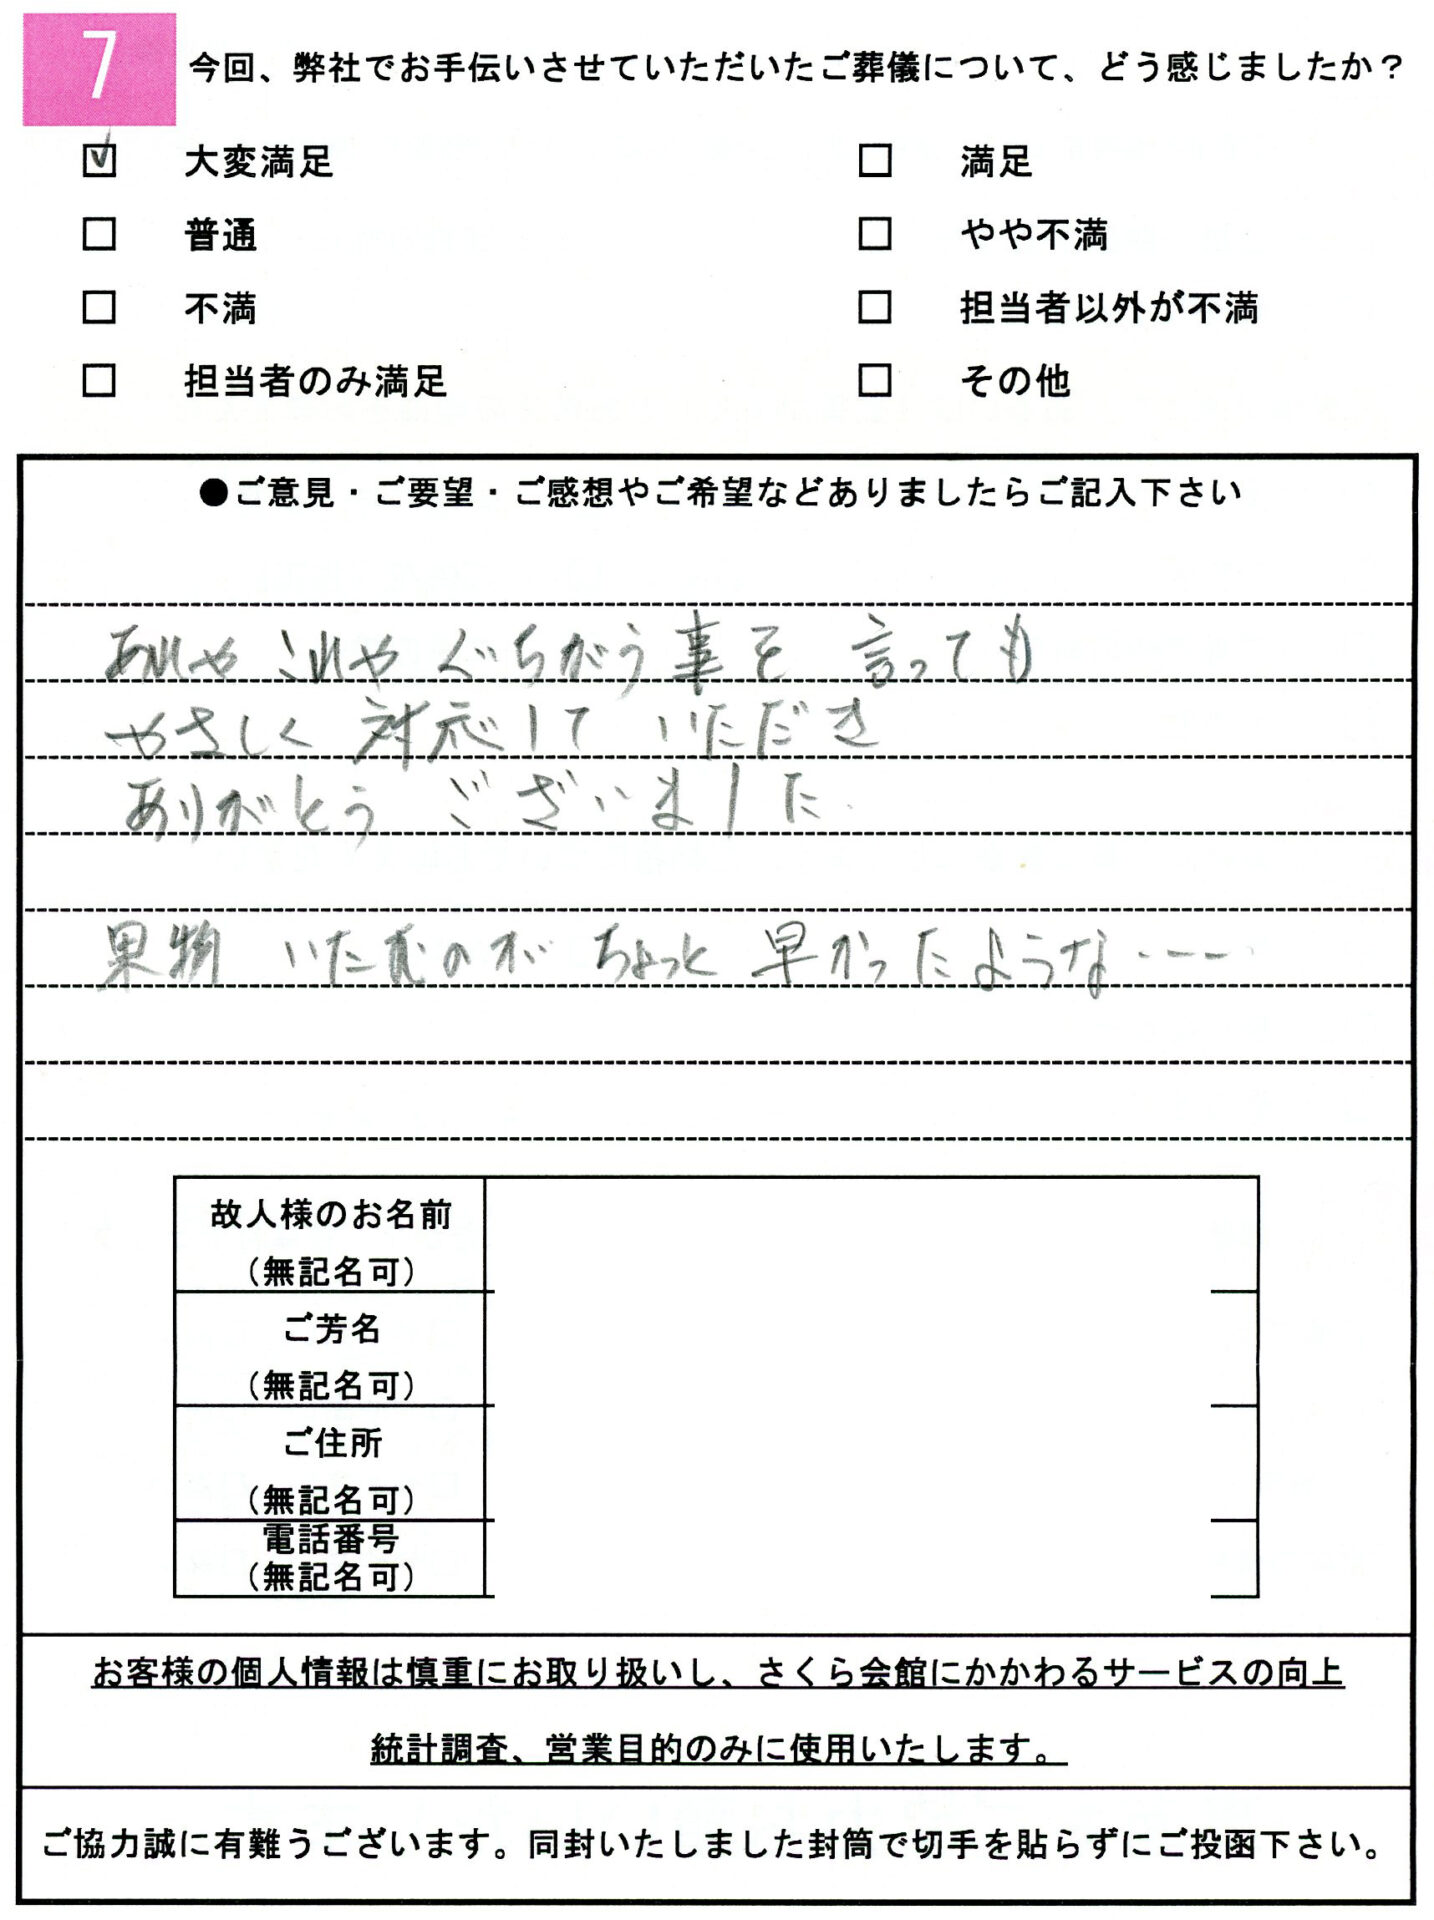 7
今回、弊社でお手伝いさせていただいたご葬儀について、どう感じましたか？
大変満足
満足
普通
やや不満
不満
担当者以外が不満
担当者のみ満足
その他
●ご意見・ご要望・ご感想やご希望などありましたらご記入下さい
あれや これや ぐちがう事を 言っても
やさしく 対応して いただき
ありがとう ございました.
果物 いたむのが ちょっと 早かったような・・・・
故人様のお名前
（無記名可）
ご芳名
（無記名可）
ご住所
（無記名可）
電話番号
（無記名可）
お客様の個人情報は慎重にお取り扱いし、さくら会館にかかわるサービスの向上
統計調査、営業目的のみに使用いたします。
ご協力誠に有難うございます。同封いたしました封筒で切手を貼らずにご投函下さい。